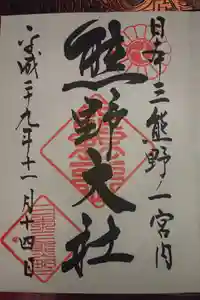 日本三熊野ノ一宮内
熊野大社
平成二十九年十一月十四日